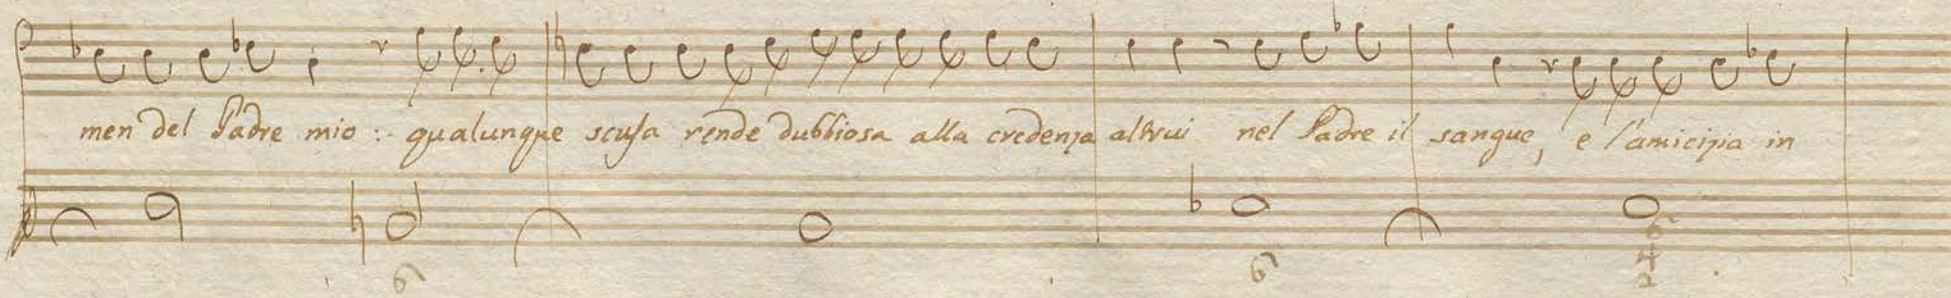 men del Padre mio : qualunque scusa rende dubbiosa alla credenza altrui nel Padre il sangue, e l'amicizia in
6 6 6
4
2